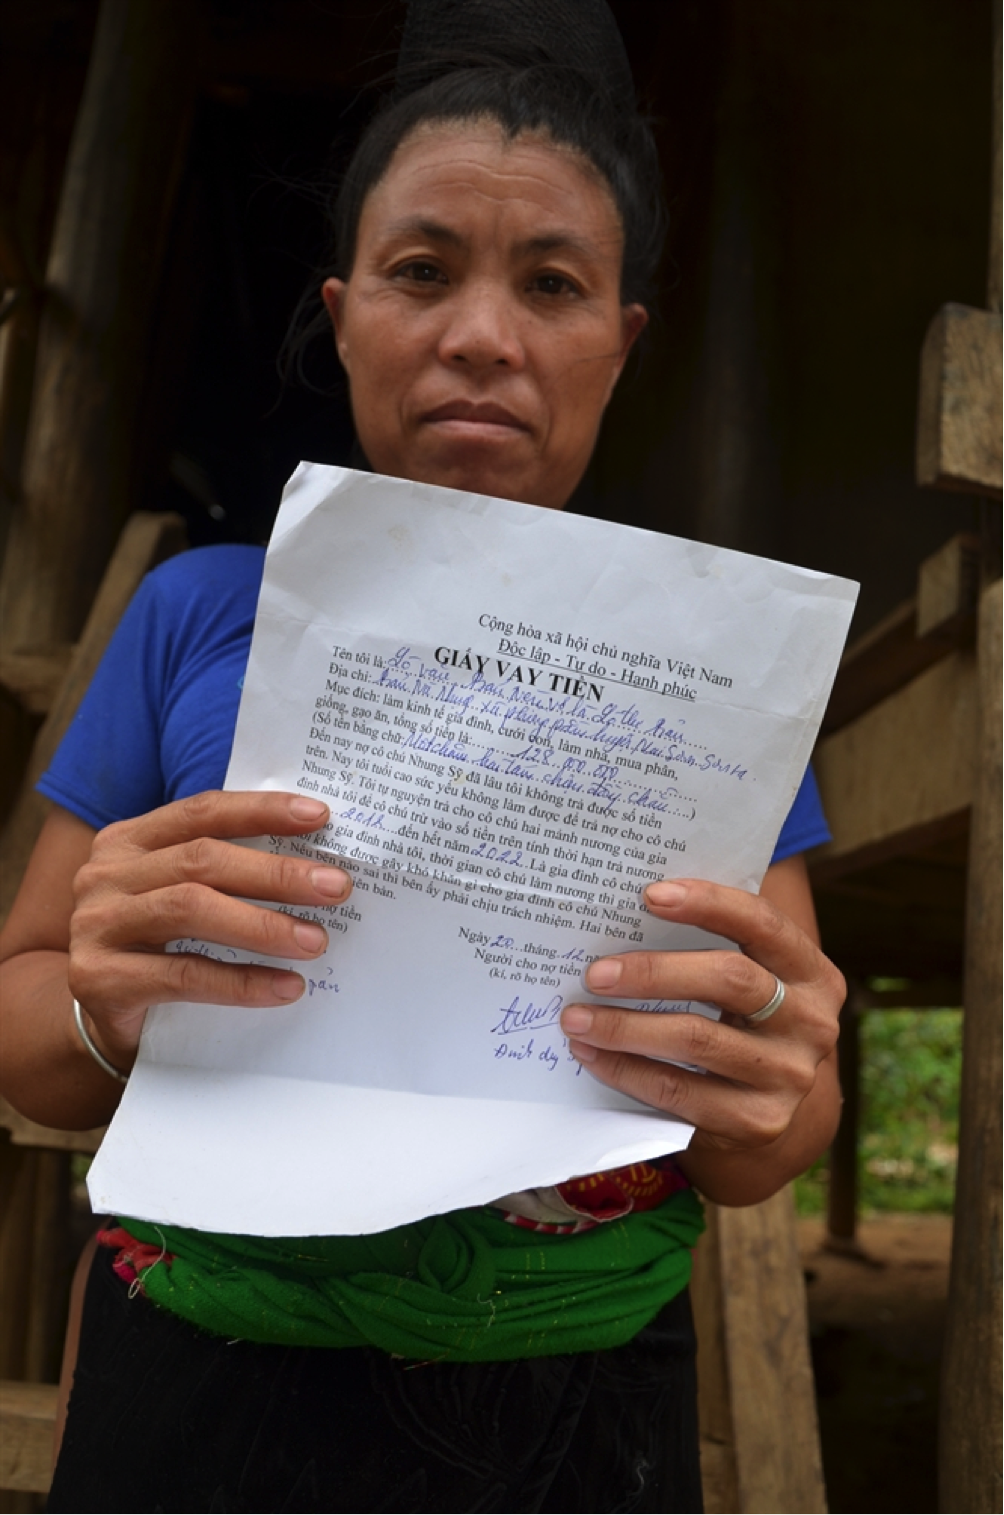 Cộng hòa xã hội chủ nghĩa Việt Nam
Độc lập - Tự do - Hạnh phúc
GIẤY VAY TIỀN
Tên tôi là: Lò văn
Địa chỉ: xã
Mục đích: làm kinh tế gia đình, cưới con, làm nhà, mua phân,
giống, gạo ăn, tổng số tiền là: 128.000.000
(Số tiền bằng chữ: Một trăm hai tám)
Đến nay nợ cô chú Nhung Sỹ đã lâu tôi không trả được số tiền
trên. Nay tôi tuổi cao sức yếu không làm được để trả nợ cho cô chú
Nhung Sỹ. Tôi tự nguyện trả cho cô chú hai mảnh nương của gia
đình nhà tôi để cô chú trừ vào số tiền trên tính thời hạn trả nương
2012 đến hết năm 2022. Là gia đình cô chú
gia đình nhà tôi, thời gian cô chú làm nương thì gia
không được gây khó khăn gì cho gia đình cô chú Nhung
Sỹ. Nếu bên nào sai thì bên ấy phải chịu trách nhiệm. Hai bên đã
biên bản.
Ngày 20 tháng 12
nợ tiền
Người cho nợ tiền
(kí, rõ họ tên)
(kí, rõ họ tên)
Đinh